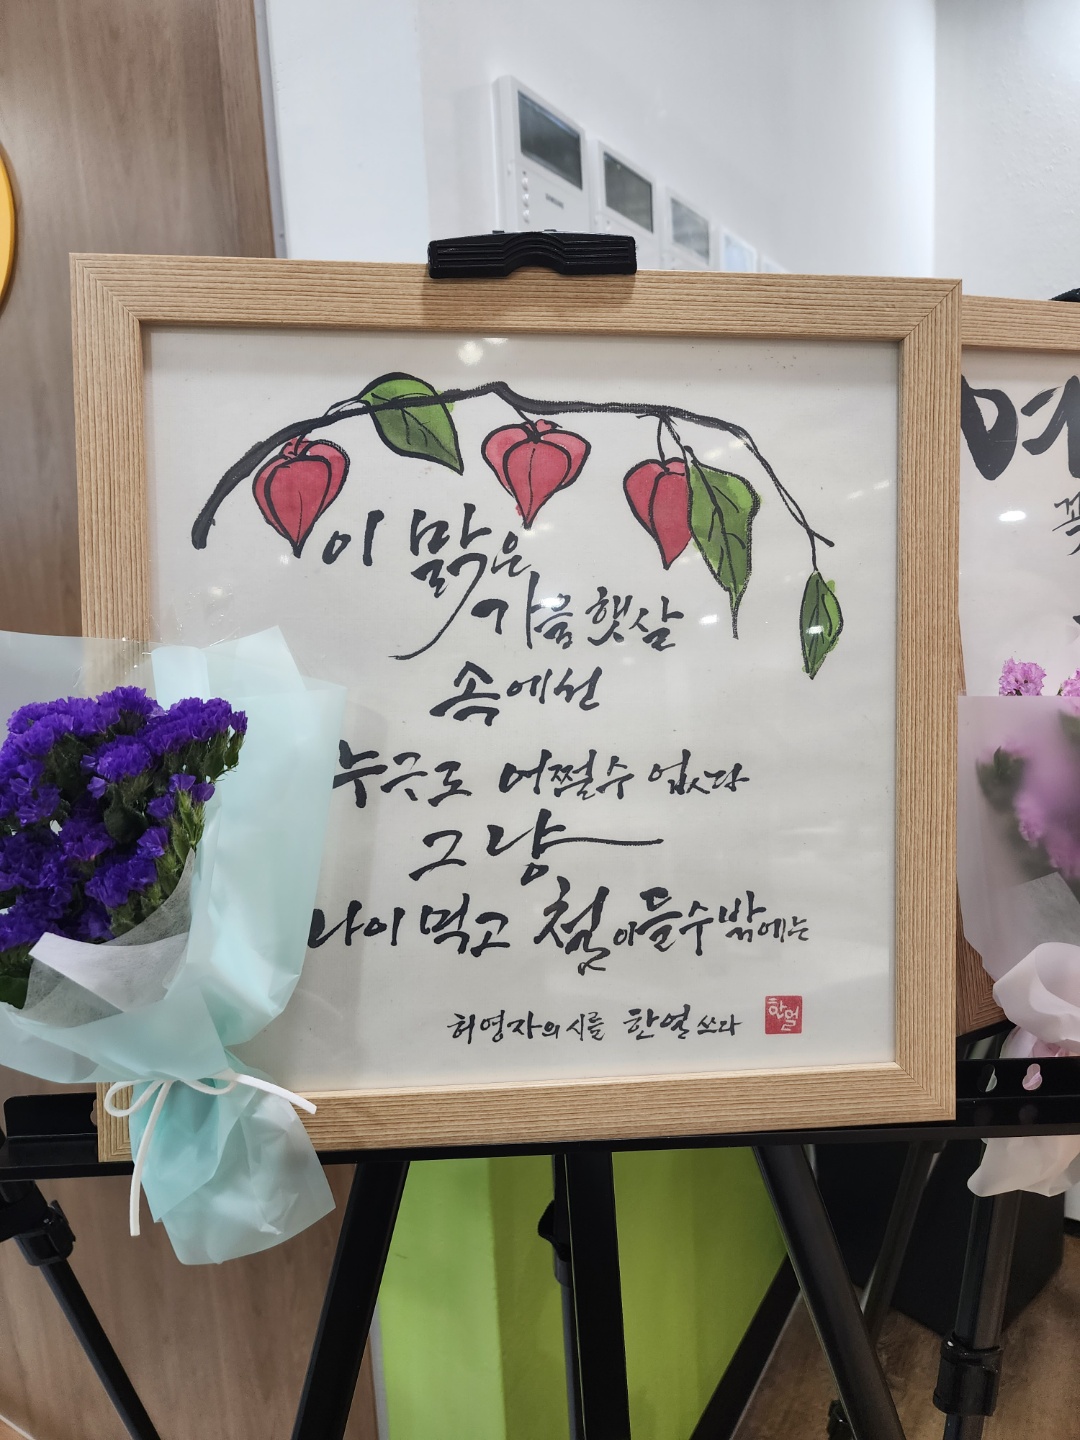 이 맑은
가을햇살
속에선
누구도 어쩔수 없다
그냥
나이 먹고 철이들수밖에는
허영자의 시를 한얼 쓰다
한얼
SAMSUNG
여
꽃